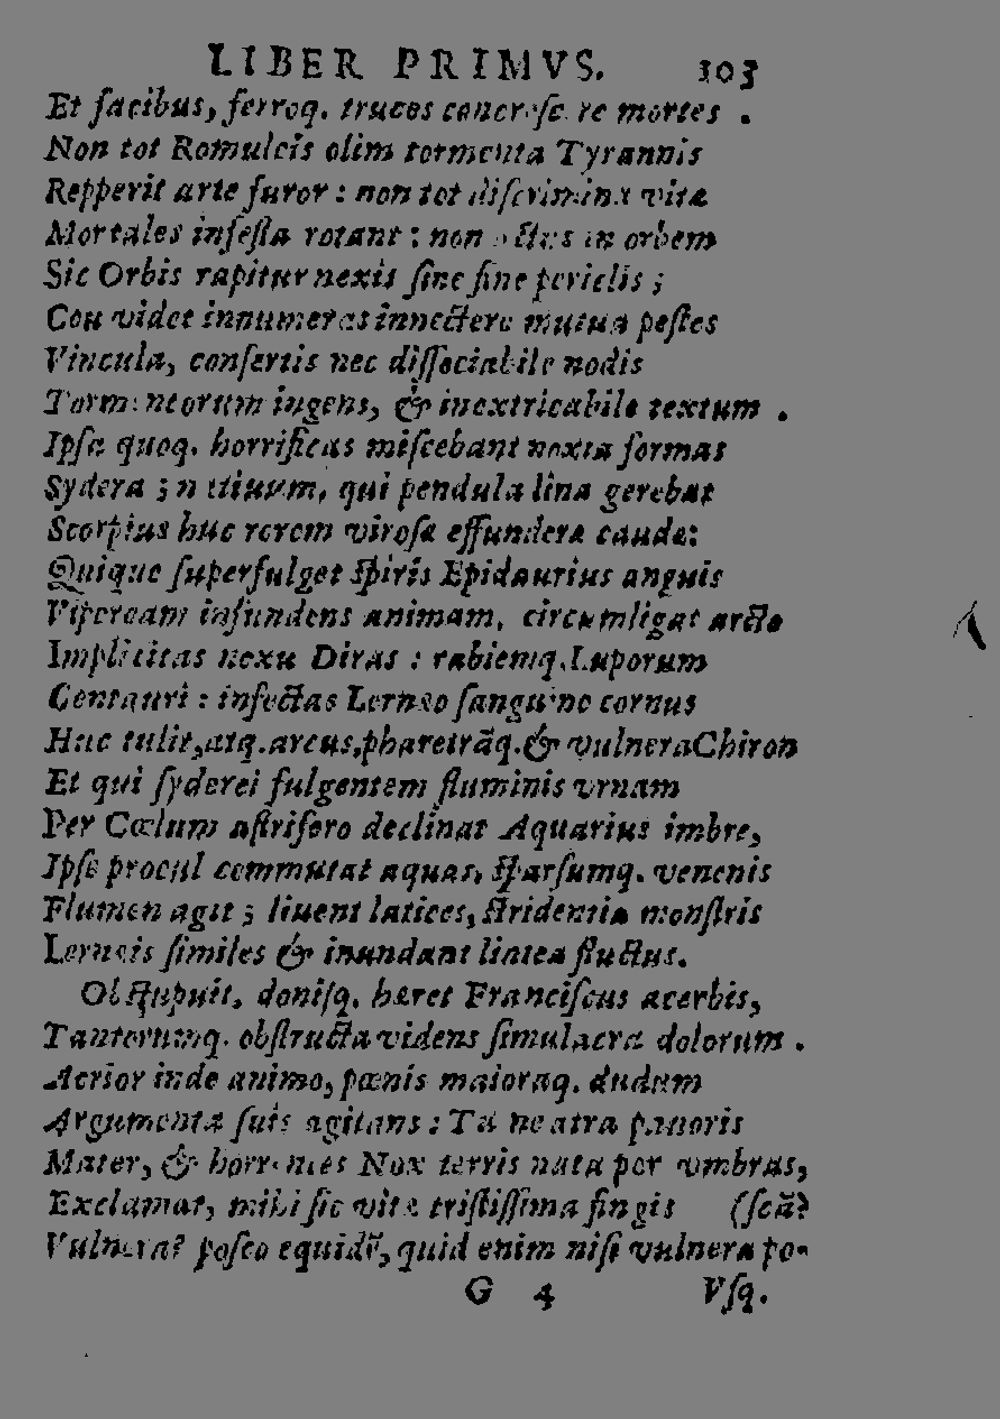 LIBER PRIMVS. 103
Et facibus, ferroq. truces concresc re mortes .
Non tot Romuleis olim tormenta Tyrannis
Repperit arte furor : non tot discrimina vitæ
Mortales infesta rotant : non in orbem
Sic Orbis rapitur nexis sine fine periclis ;
Ceu videt innumeras innectere mutua pestes
Vincula, consertis nec dissociabile nodis
Tormentorum ingens, & inextricabile textum .
Ipsa quoq. horrificas miscebant noxia formas
Sydera ; qui pendula lina gerebat
Scorpius huc rorem virosa effundere cauda:
Quique superfulget spiris Epidaurius anguis
Vipeream infundens animam, circumligat arcto
Implicitas nexu Diras : rabiemq. Luporum
Centauri : infectas Lerneo sanguine cornus
Huc tulit, atq. arcus, pharetrāq. & vulnera Chiron
Et qui syderei fulgentem fluminis vrnam
Per Cœlum astrifero declinat Aquarius imbre,
Ipse procul commutat aquas, sparsumq. venenis
Flumen agit ; liuent latices, stridentia monstris
Lerneis similes & inundant lintea fluctus.
Obstupuit, donisq. hæret Franciscus acerbis,
Tantorumq. obstructa videns simulacra dolorum .
Acrior inde animo, pœnis maioraq. dudum
Argumenta suis agitans : Tu ne atra pauoris
Mater, & horrentes Nox terris nata per vmbras,
Exclamat, mihi sic vitæ tristissima fingis (scā?
Vulnera? posco equidē, quid enim nisi vulnera po-
G 4 Vsq.